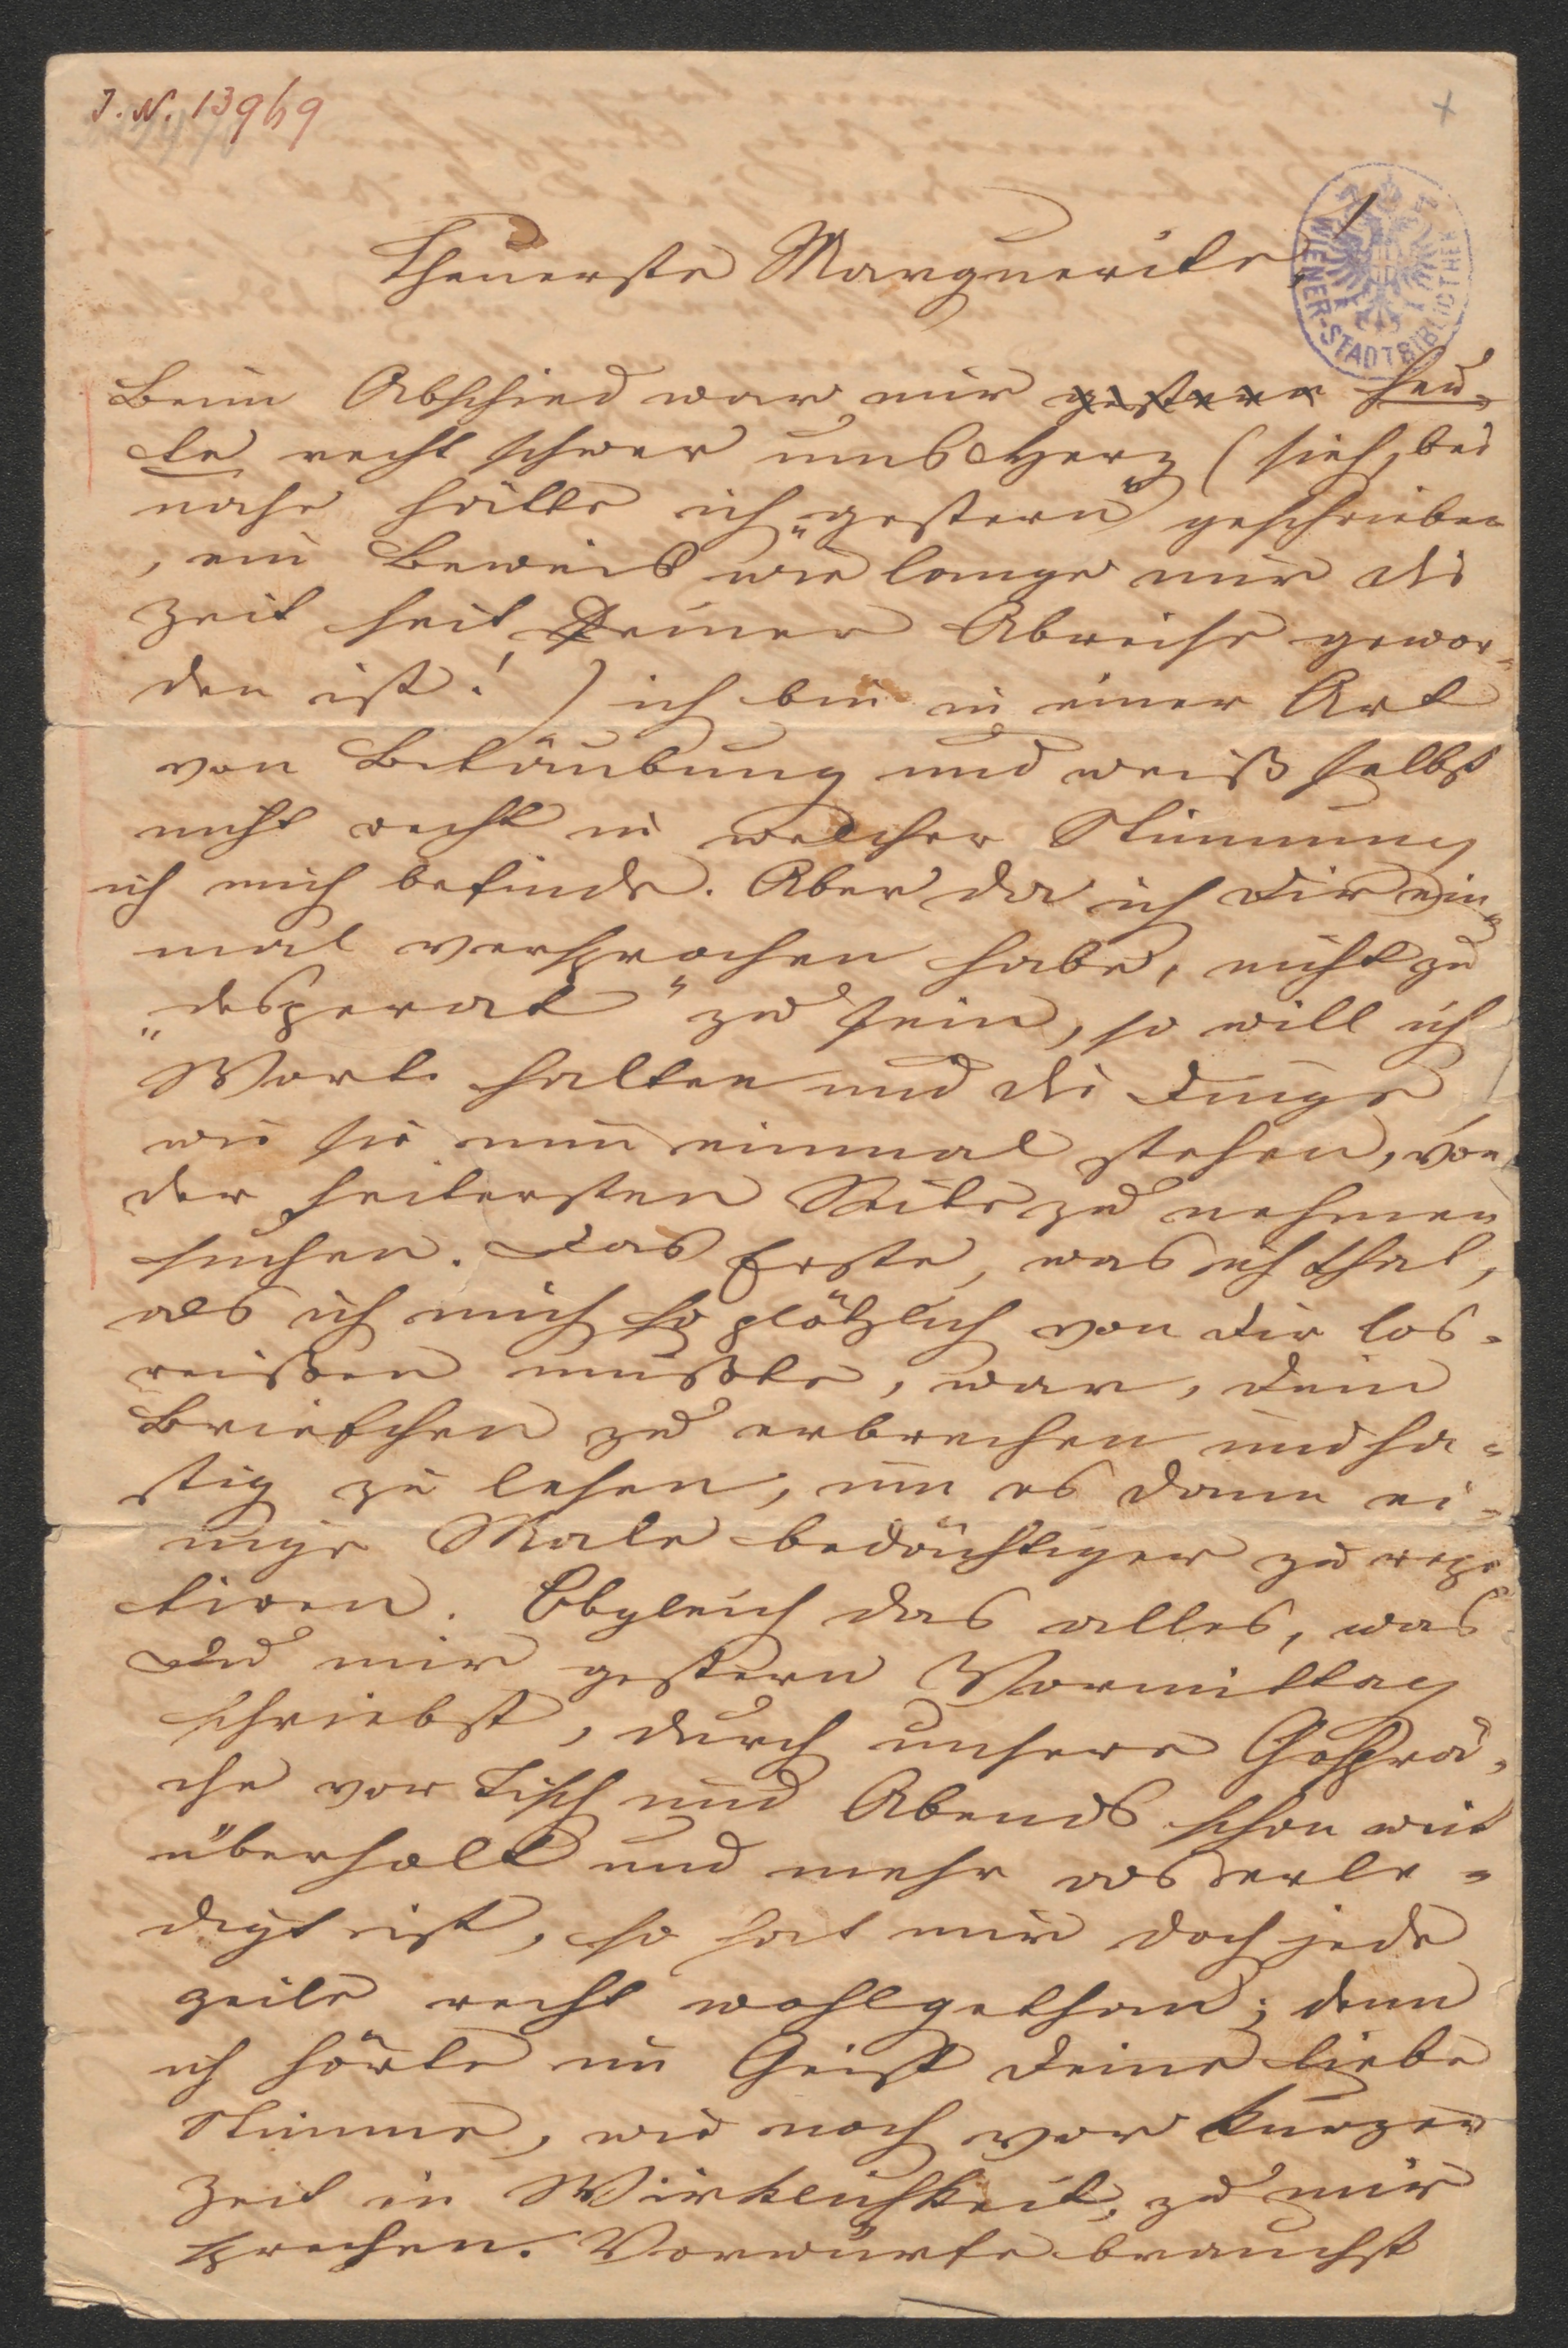 J. N. 13969
+
WIENER-STADTBIBLIOTHEK
Theuerste Marguerite!
Beim Abschied war mir gestern heu-
te recht schwer ums Herz (sieh, bei
nahe hätte ich „gestern" geschrieben
, ein Beweis wie lange mir die
Zeit seit Deiner Abreise gewor-
den ist! ) ich bin in einer Art
von Betäubung und weiß selbst
nicht recht in welcher Stimmung
ich mich befinde. Aber da ich Dir ein-
mal versprochen habe, nicht zu
„desperat" zu sein, so will ich
Wort halten und die Dinge
wie sie nun einmal stehen, von
der heitersten Seite zu nehmen
suchen. Das Erste, was ich that,
als ich mich so plötzlich von Dir los-
reißen mußte, war, Dein
Briefchen zu erbrechen und ha-
stig zu lesen, um es dann ei-
nige Male bedächtiger zu repe
tiren. Obgleich das alles, was
Du mir gestern Vormittag
schriebst, durch unsere Gesprä-
che vor Tisch und Abends schon weit
überholt und mehr als erle-
digt ist, so hat mir doch jede
Zeile recht wohlgethan; denn
ich hörte im Geist Deine liebe
Stimme, wie noch vor kurzer
Zeit in Wirklichkeit, zu mir
sprechen. Vorwürfe brauchst